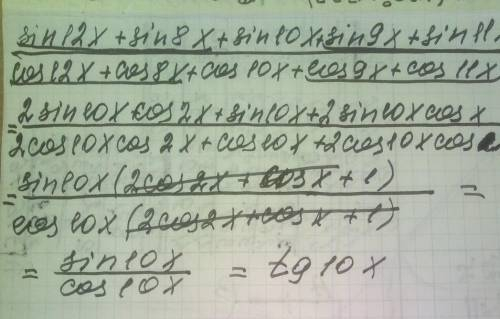 sin12x + sin8x + sin10x + sin9x + sin11x
cos12x + cos8x + cos10x + cos9x + cos11x
= 2sin10x·cos2x + sin10x + 2sin10x cosx
2cos10x cos2x + cos10x + 2cos10x cos
= sin10x (2cos2x + cosx + 1) =
cos10x (2cos2x + cosx + 1)
= sin10x = tg10x
cos10x